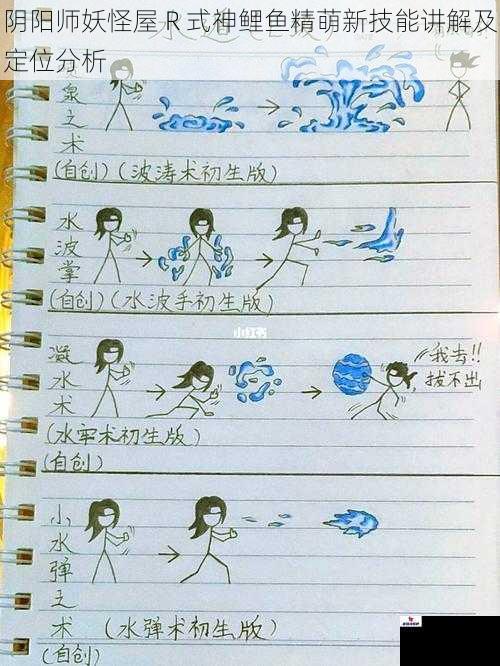 阴阳师妖怪屋 R 式神鲤鱼精萌新技能讲解及
定位分析
泉之术
(自创)(波涛术初生版)
水波掌
(自创)(水波手初生版)
小红书
凝水术
我去!!
拔不出
(水牢术初生版)
(自创)
小水弹之术
(水弹术初生版)
(自创)